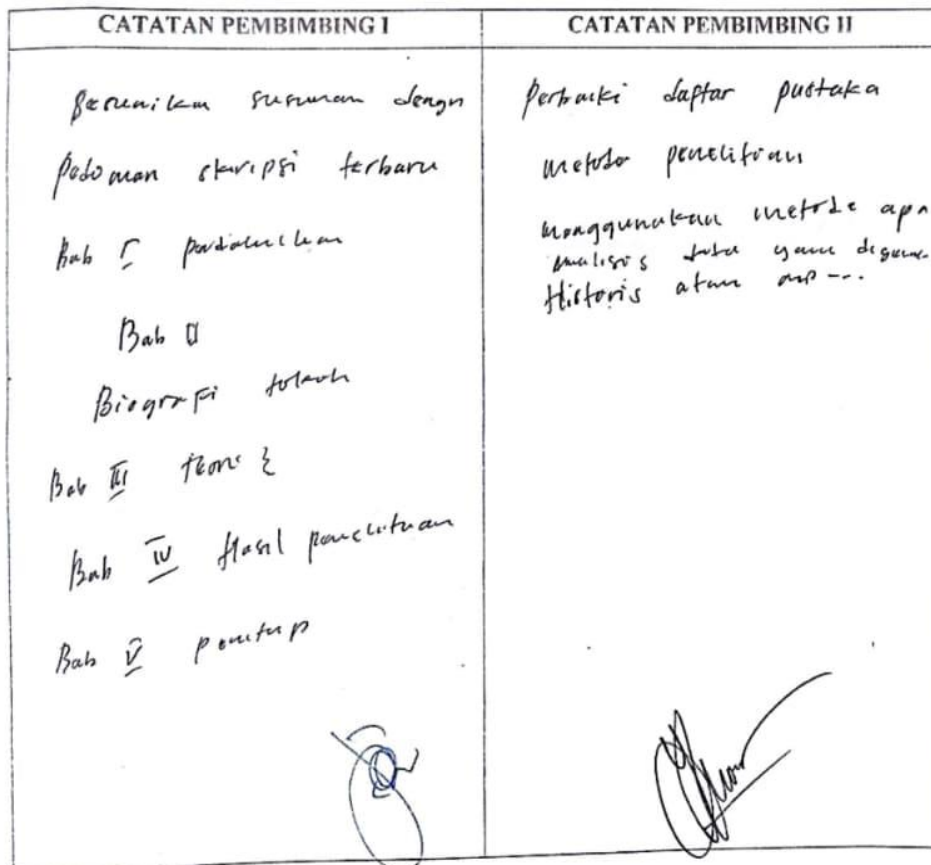 CATATAN PEMBIMBING I
Sesuaikan susunan dengn
Pedoman skripsi terbaru
Bab I pendahuluan
Bab II
Biografi tokoh
Bab III teori
Bab IV Hasil penelitian
Bab V penutup
CATATAN PEMBIMBING II
Perbaiki daftar pustaka
metode penelitian
menggunakan metode apa
analisis data yang
Historis atau